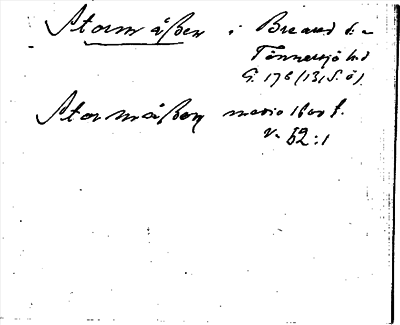 Stormåßen i Breared s:n
Tönnersjö hd
G. 176 (131 S. ö).
Stormåßen medio 1600 t.
v. 62:1